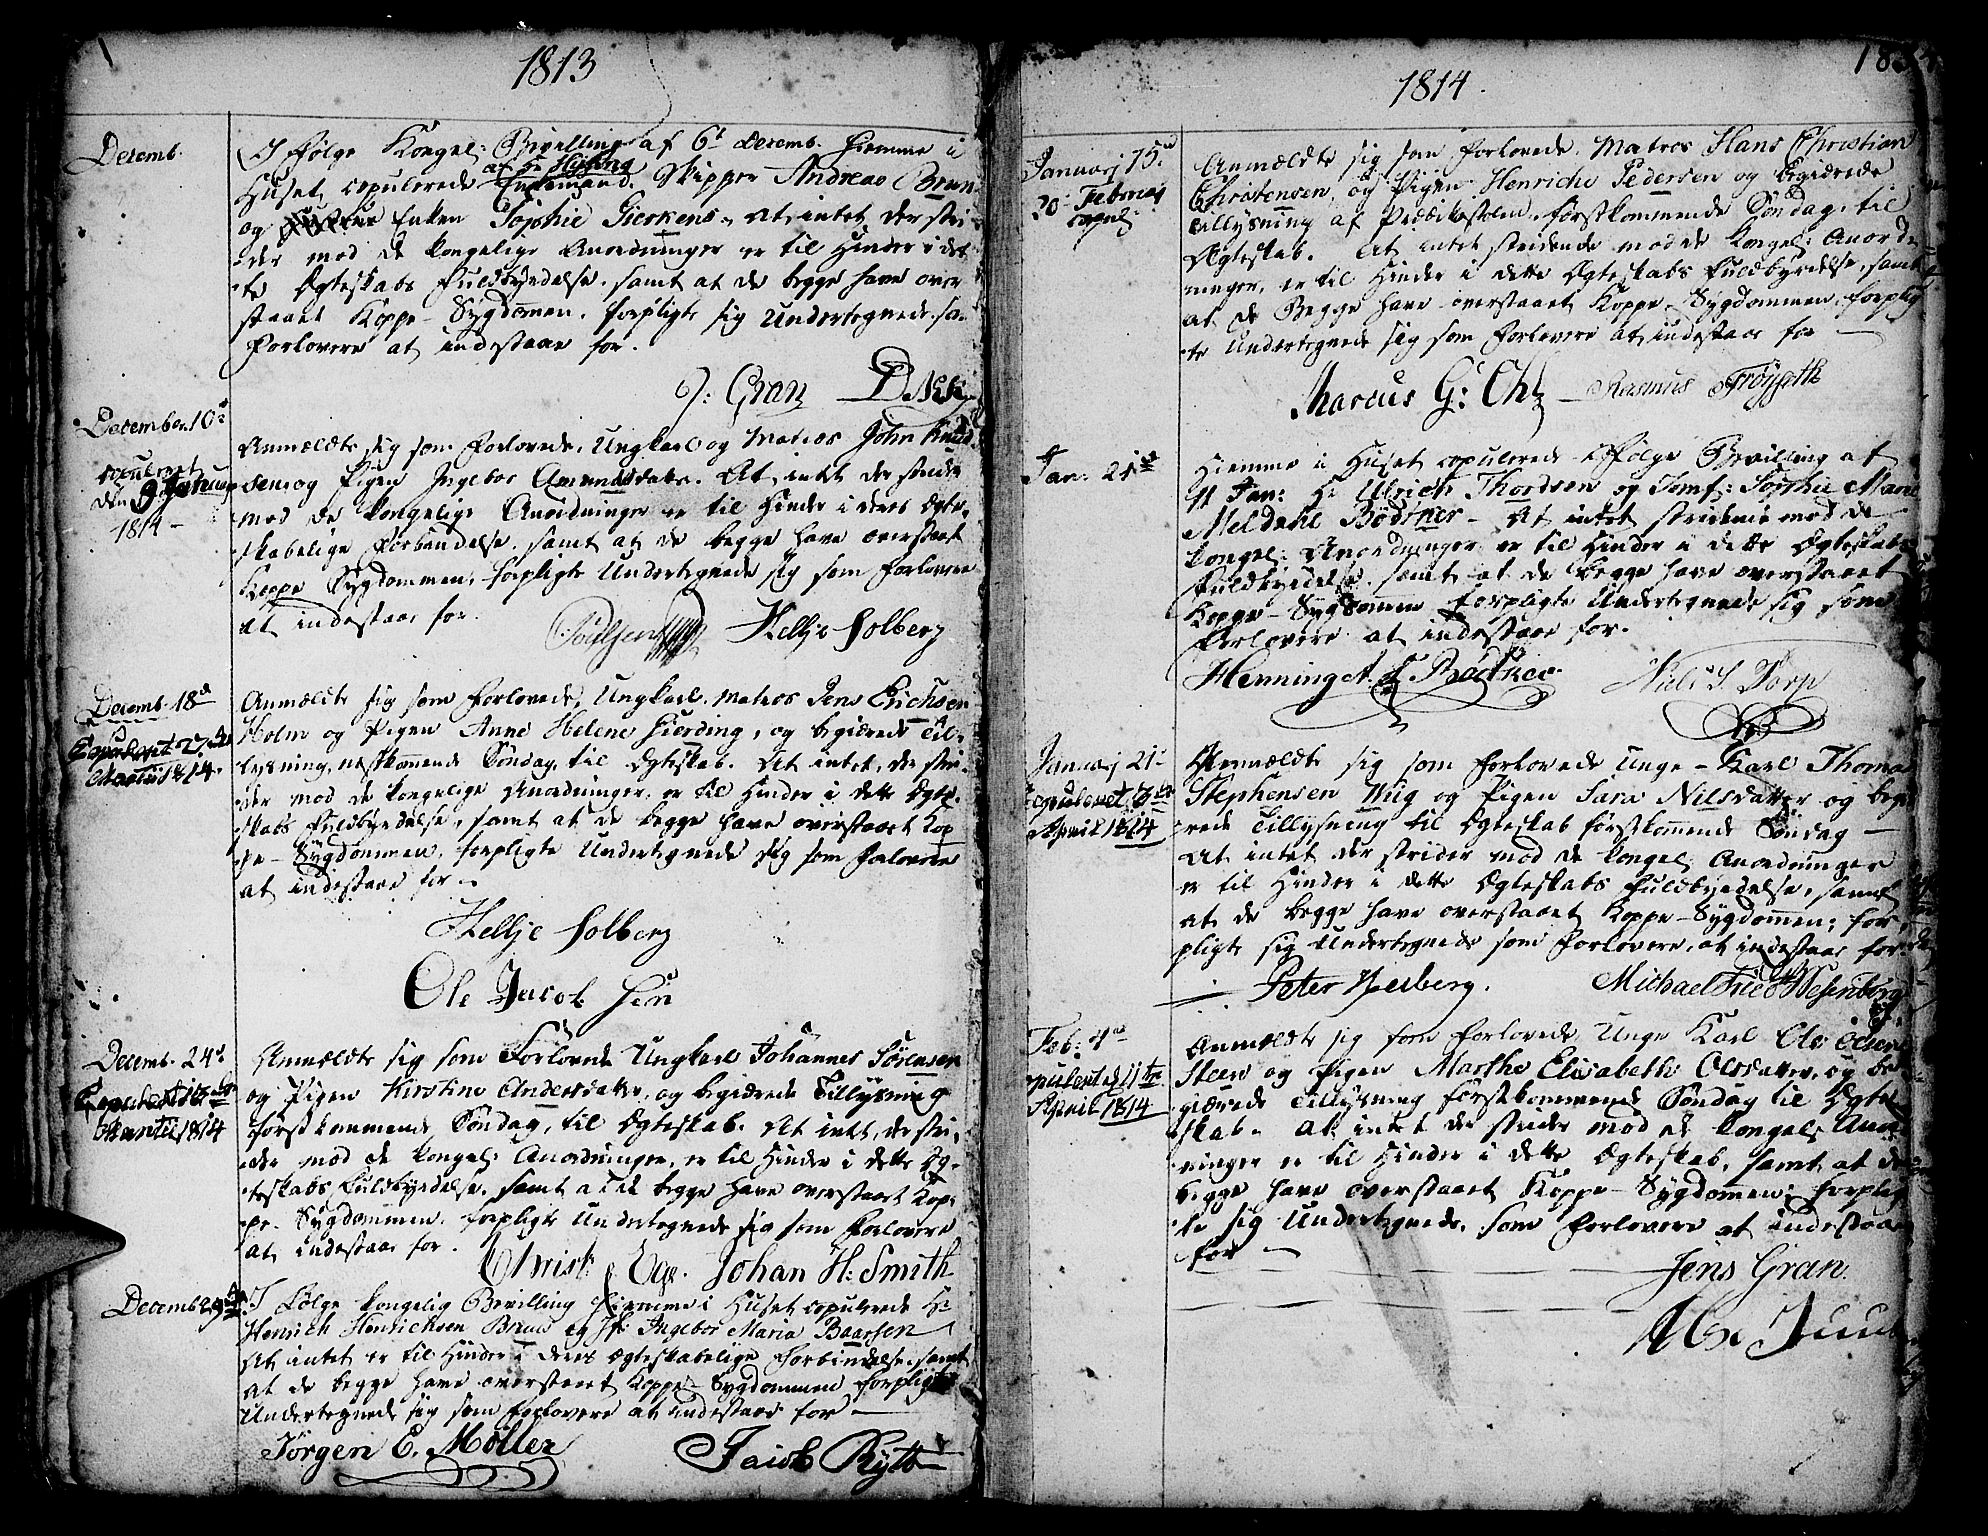 1813
Decemb.
I følge Kongel: Bevilling af 6t Decemb. hiemme i
Huset copulerede Enkemand Skipper Andreas Bruun
og Enken Sophie Gierkens. At intet der stri-
der mod de kongelige Anordninger er til Hinder i det-
te Ægteskabs Fuldbyrdelse, samt at de begge have over
staaet Koppe-Sygdommen, forpligte sig Undertegnede so.
Forlovere at indestaae for.
J: Gran
December 10de
copuleret
den 9 Januar
1814 -
Anmældte sig som Forlovede, Ungkarl og Matros John Knud
sen og Pigen Ingebor Amundsdatter. At intet der strider
mod de kongelige Anordninger er til Hinder i deres Ægte-
skabelige Forbindelse, samt at de begge have overstaaet
Koppe Sygdommen, forpligte Undertegnede sig som Forlovere
at indestaae for.
Poulsen Hellje Solberg
Decemb. 18d
Copuleret 27de
Martii 1814.
Anmældte sig som Forlovede, Ungkarl, Matros Jens Erichsen
Holm og Pigen Anne Helene Gierding, og begierede Til-
lysning, næstkommende Søndag, til Ægteskab. At intet, der stri-
der mod de kongelige Anordninger, er til Hinder i dette Ægte-
skabs Fuldbyrdelse, samt at de begge have overstaaet Kop
pe-Sygdommen, forpligte Undertegnede sig som Forlovere
at indestaae for.
Hellje Solberg
Ole Jacob
Decemb. 24d
Copuleret 13de
Martii 1814
Anmældte sig som Forlovede Ungkarl Johannes Sørensen
og Pigen Kirstine Andersdatter, og begierede Tillysning
førstkommende Søndag, til Ægteskab. At intet, der stri-
der mod de kongel: Anordninger, er til Hinder i dette Æg-
teskabs Fuldbyrdelse, samt at de begge have overstaaet Kop-
pe-Sygdommen, forpligte Undertegnede sig som Forlovere
at indestaae for.
Christ Johan H: Smith
Decemb. 29de
I Følge kongelig Bevilling hiemme i Huset copulerede Hr
Henrich Henrichsen Bruun og Jfr Ingebor Maria Baarsen
At intet er til Hinder i deres Ægteskabelige Forbindelse, samt
at de begge have overstaaet Koppe-Sygdommen forpligte
Undertegnede sig som Forlovere at indestaae for
Jörgen C. Möller Jacob Rytt
1814.
Januarj 15de
20 Februar
copul:
Anmældte sig som Forlovede, Matros Hans Christian
Christensen, og Pigen Henriche Pedersen og begierede
Tillysning af Prædikestolen, førstkommende Søndag, til
Ægteskab. At intet stridende mod de kongel: Anord-
ninger, er til Hinder i dette Ægteskabs Fuldbyrdelse, samt
at de Begge have overstaaet Koppe-Sygdommen, forplig
te Undertegnede sig som Forlovere at indestaae for
Marcus G: Rasmus Frøyseth
Jan: 21de
Hiemme i Huset copulerede i Følge Bevilling af
11 Jan: Hr Ulrich Thordsen og Jomf: Sophie Marie
Meldahl Bødtker. At intet stridende mod de
kongel: Anordninger er til Hinder i dette Ægteskabs
Fuldbyrdelse, samt at de begge have overstaaet
Koppe-Sygdommen forpligte Undertegnede sig som
Forlovere at indestaae for.
Henning Bødtker Niels S Dorp
Januarj 21de
Copuleret 3de
April 1814
Anmældte sig som Forlovede Unge-Karl Thomas
Stephensen Wiig og Pigen Sara Nilsdatter og begi
rede Tillysning til Ægteskab førstkommende Søndag
At intet der strider mod de kongel: Anordninger
er til Hinder i dette Ægteskabs Fuldbyrdelse, samt
at de begge have overstaaet Koppe-Sygdommen; for
pligte sig Undertegnede som Forlovere, at indestaae for.
Peter Michael Fried Wesenberg
Feb: 4de
copuleret d 11te
April 1814
Anmældte sig som Forlovede Unge Karl Ole Olsen
Steen og Pigen Marthe Elisabeth Olsdatter, og be-
gierede Tillysning førstkommende Søndag til Ægte
skab. At intet der strider mod de kongel: Anord
ninger er til Hinder i dette Ægteskab, samt at de
begge have overstaaet Koppe-Sygdommen; forplig
te sig Undertegnede, som Forlovere at indestaae
for
Jens Gran.
Juul